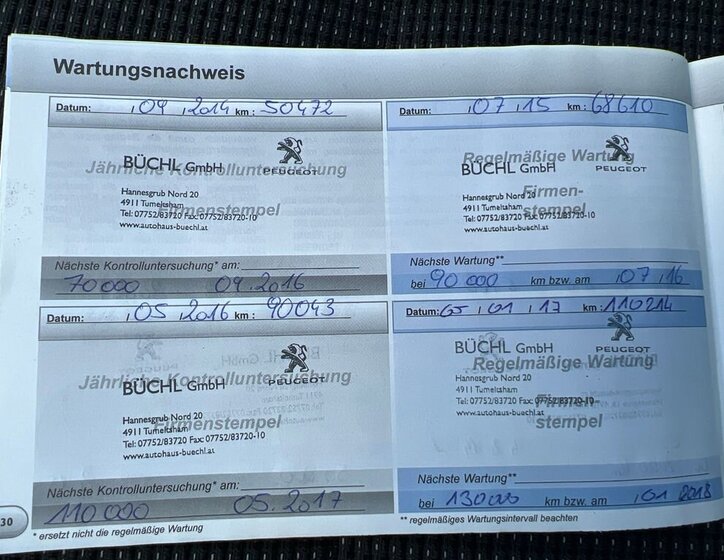 Wartungsnachweis
Datum: ,04 ,2014 km: 50472
Jährliche Kontrolluntersuchung
BÜCHL GmbH PEUGEOT
Hannesgrub Nord 20
4911 Tumeltsham
Firmenstempel
Tel: 07752/83720 Fax: 07752/83720-10
www.autohaus-buechl.at
Nächste Kontrolluntersuchung* am:
70000 04.2016
Datum: ,07 ,15 km: 68610
Regelmäßige Wartung
BÜCHL GmbH PEUGEOT
Hannesgrub Nord 20
Firmen-
4911 Tumeltsham
stempel
Tel: 07752/83720 Fax: 07752/83720-10
www.autohaus-buechl.at
Nächste Wartung**
bei 90 000 km bzw. am ,07 ,16
Datum: ,05 ,2016 km: 90043
Jährliche Kontrolluntersuchung
BÜCHL GmbH PEUGEOT
Hannesgrub Nord 20
4911 Tumeltsham
Firmenstempel
Tel: 07752/83720 Fax: 07752/83720-10
www.autohaus-buechl.at
Nächste Kontrolluntersuchung* am:
110 000 05.2017
Datum: 05 ,01 ,17 km: 110214
BÜCHL GmbH PEUGEOT
Regelmäßige Wartung
Hannesgrub Nord 20
4911 Tumeltsham
Firmen-
Tel: 07752/83720 Fax: 07752/83720-10
www.autohaus-buechl.at
stempel
Nächste Wartung**
bei 130000 km bzw. am ,01 2018
30
* ersetzt nicht die regelmäßige Wartung
** regelmäßiges Wartungsintervall beachten